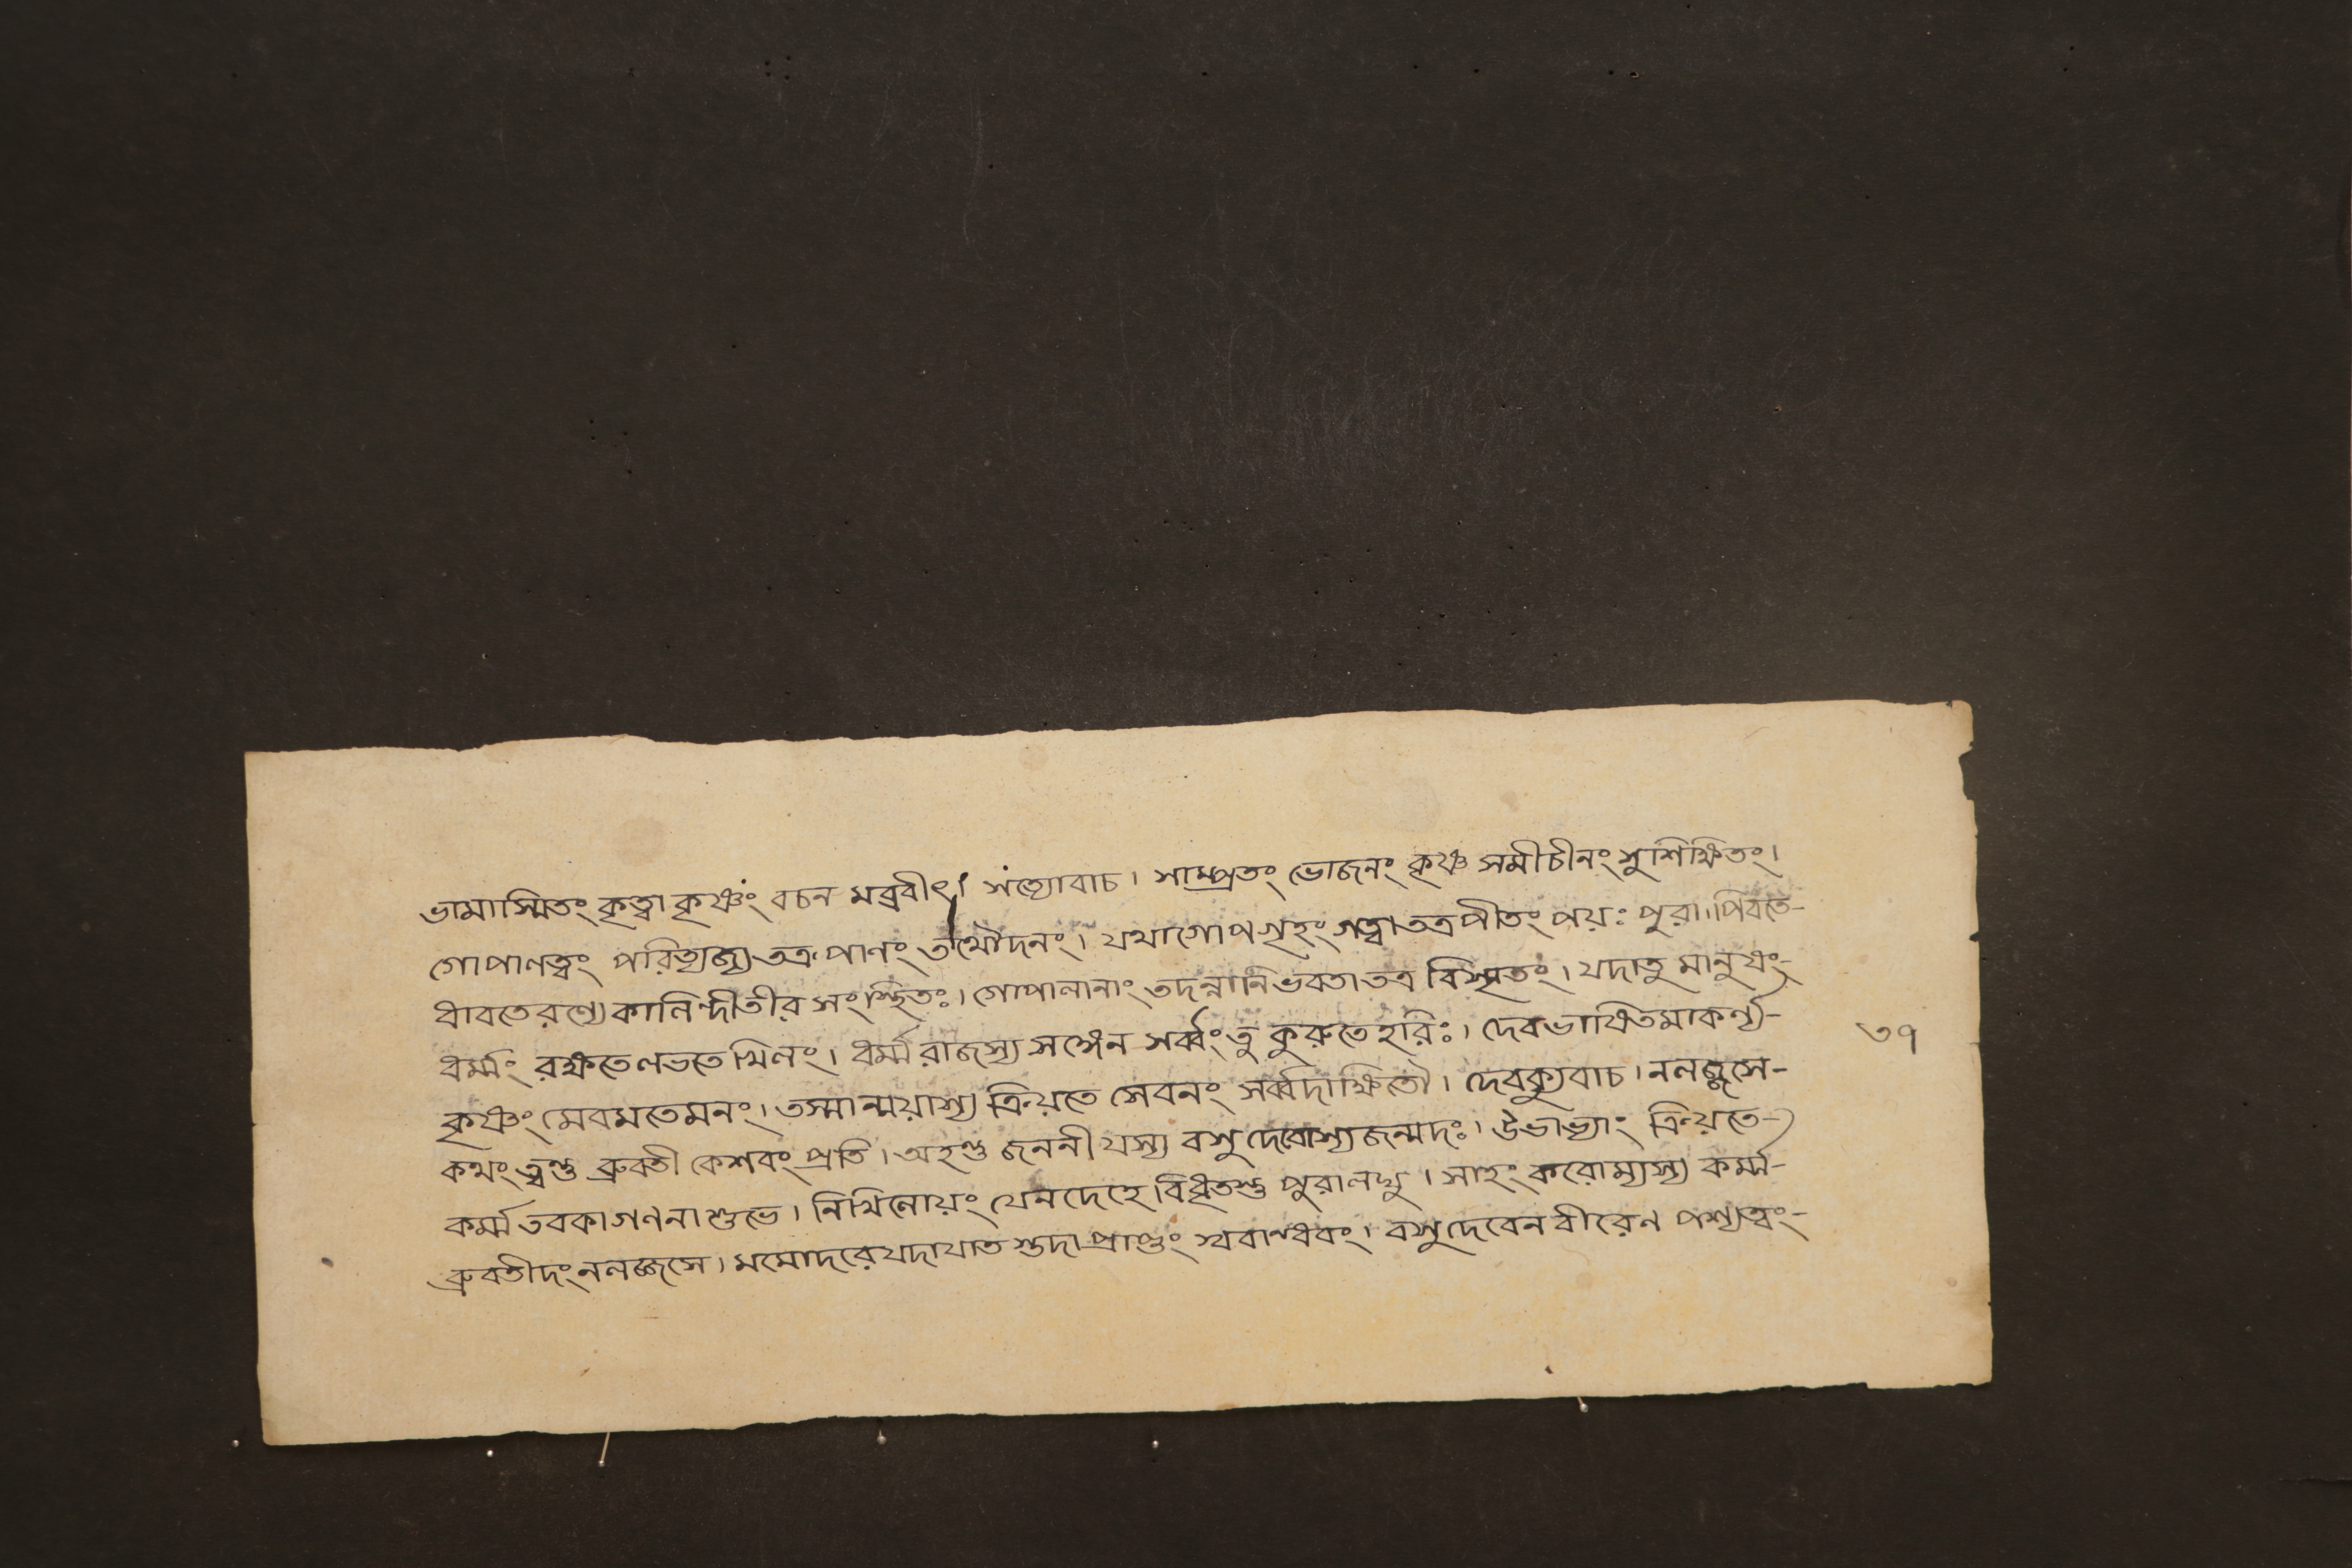 ভামাস্মিতং কৃত্বা কৃষ্ণং বচন মব্রবীৎ। সত্যোবাচ। সাম্প্রতং ভোজনং কৃষ্ণ সমীচীনং সুশিক্ষিতং।
গোপালত্বং পরিত্যজ্য তত্র পানং তথৌদনং। যথাগোপগৃহং গত্বা তত্র পীতং পয়ঃ পুরা। পিবতে-
ধাবতেরণ্যে কালিন্দীতীর সংস্থিতঃ। গোপালানাং তদন্নানি ভবতা তত্র বিস্মৃতং। যদাতু মানুষং-
ধর্ম্মং রক্ষতে লভতে খিলং। ধর্ম্মরাজস্য সঙ্গেন সর্ব্বং তু কুরুতে হরিঃ। দেবভাষিতমাকর্ণ্য- ৩৭
কৃষ্ণং মেবমতেমনং। তস্মান্ময়াস্য ক্রিয়তে সেবনং সর্ব্বদাক্ষিতৌ। দেবক্যুবাচ। নলজ্জসে-
কথং ত্বন্তু ব্রুবতী কেশবং প্রতি। অহন্তু জননী যস্য বসুদেবোস্য জন্মদঃ। উভাভ্যাং ক্রিয়তে-
কর্ম্ম তবকা গণনা শুভে। নিখিলোয়ং যেনদেহে বিধৃতস্তু পুরালঘু। সাহং করোম্যস্য কর্ম্ম-
ব্রুবতীদং নলজ্জসে। মমোদরে যদাযাত স্তদা প্রাপ্তং স্ববান্ধবং। বসুদেবেন বীরেণ পশ্যত্বং-